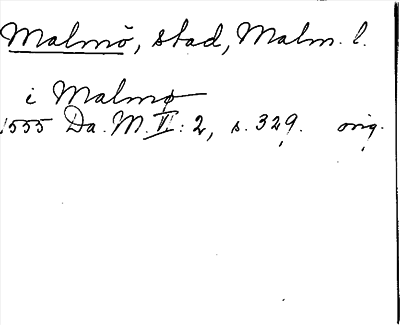 Malmö, stad, Malm. l.
i Malmø
1555 Da. M. II: 2, s. 329. orig.